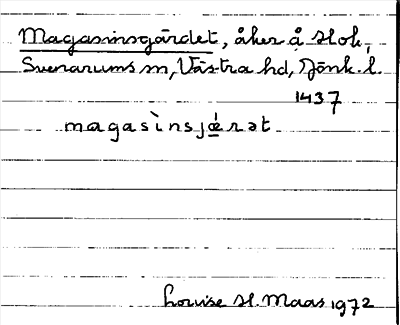 Magasinsgärdet, åker å Hok,
Svenarums sn, Västra hd, Jönk. l.
1437
magasìnsjǽrət
Louise H. Maas 1972